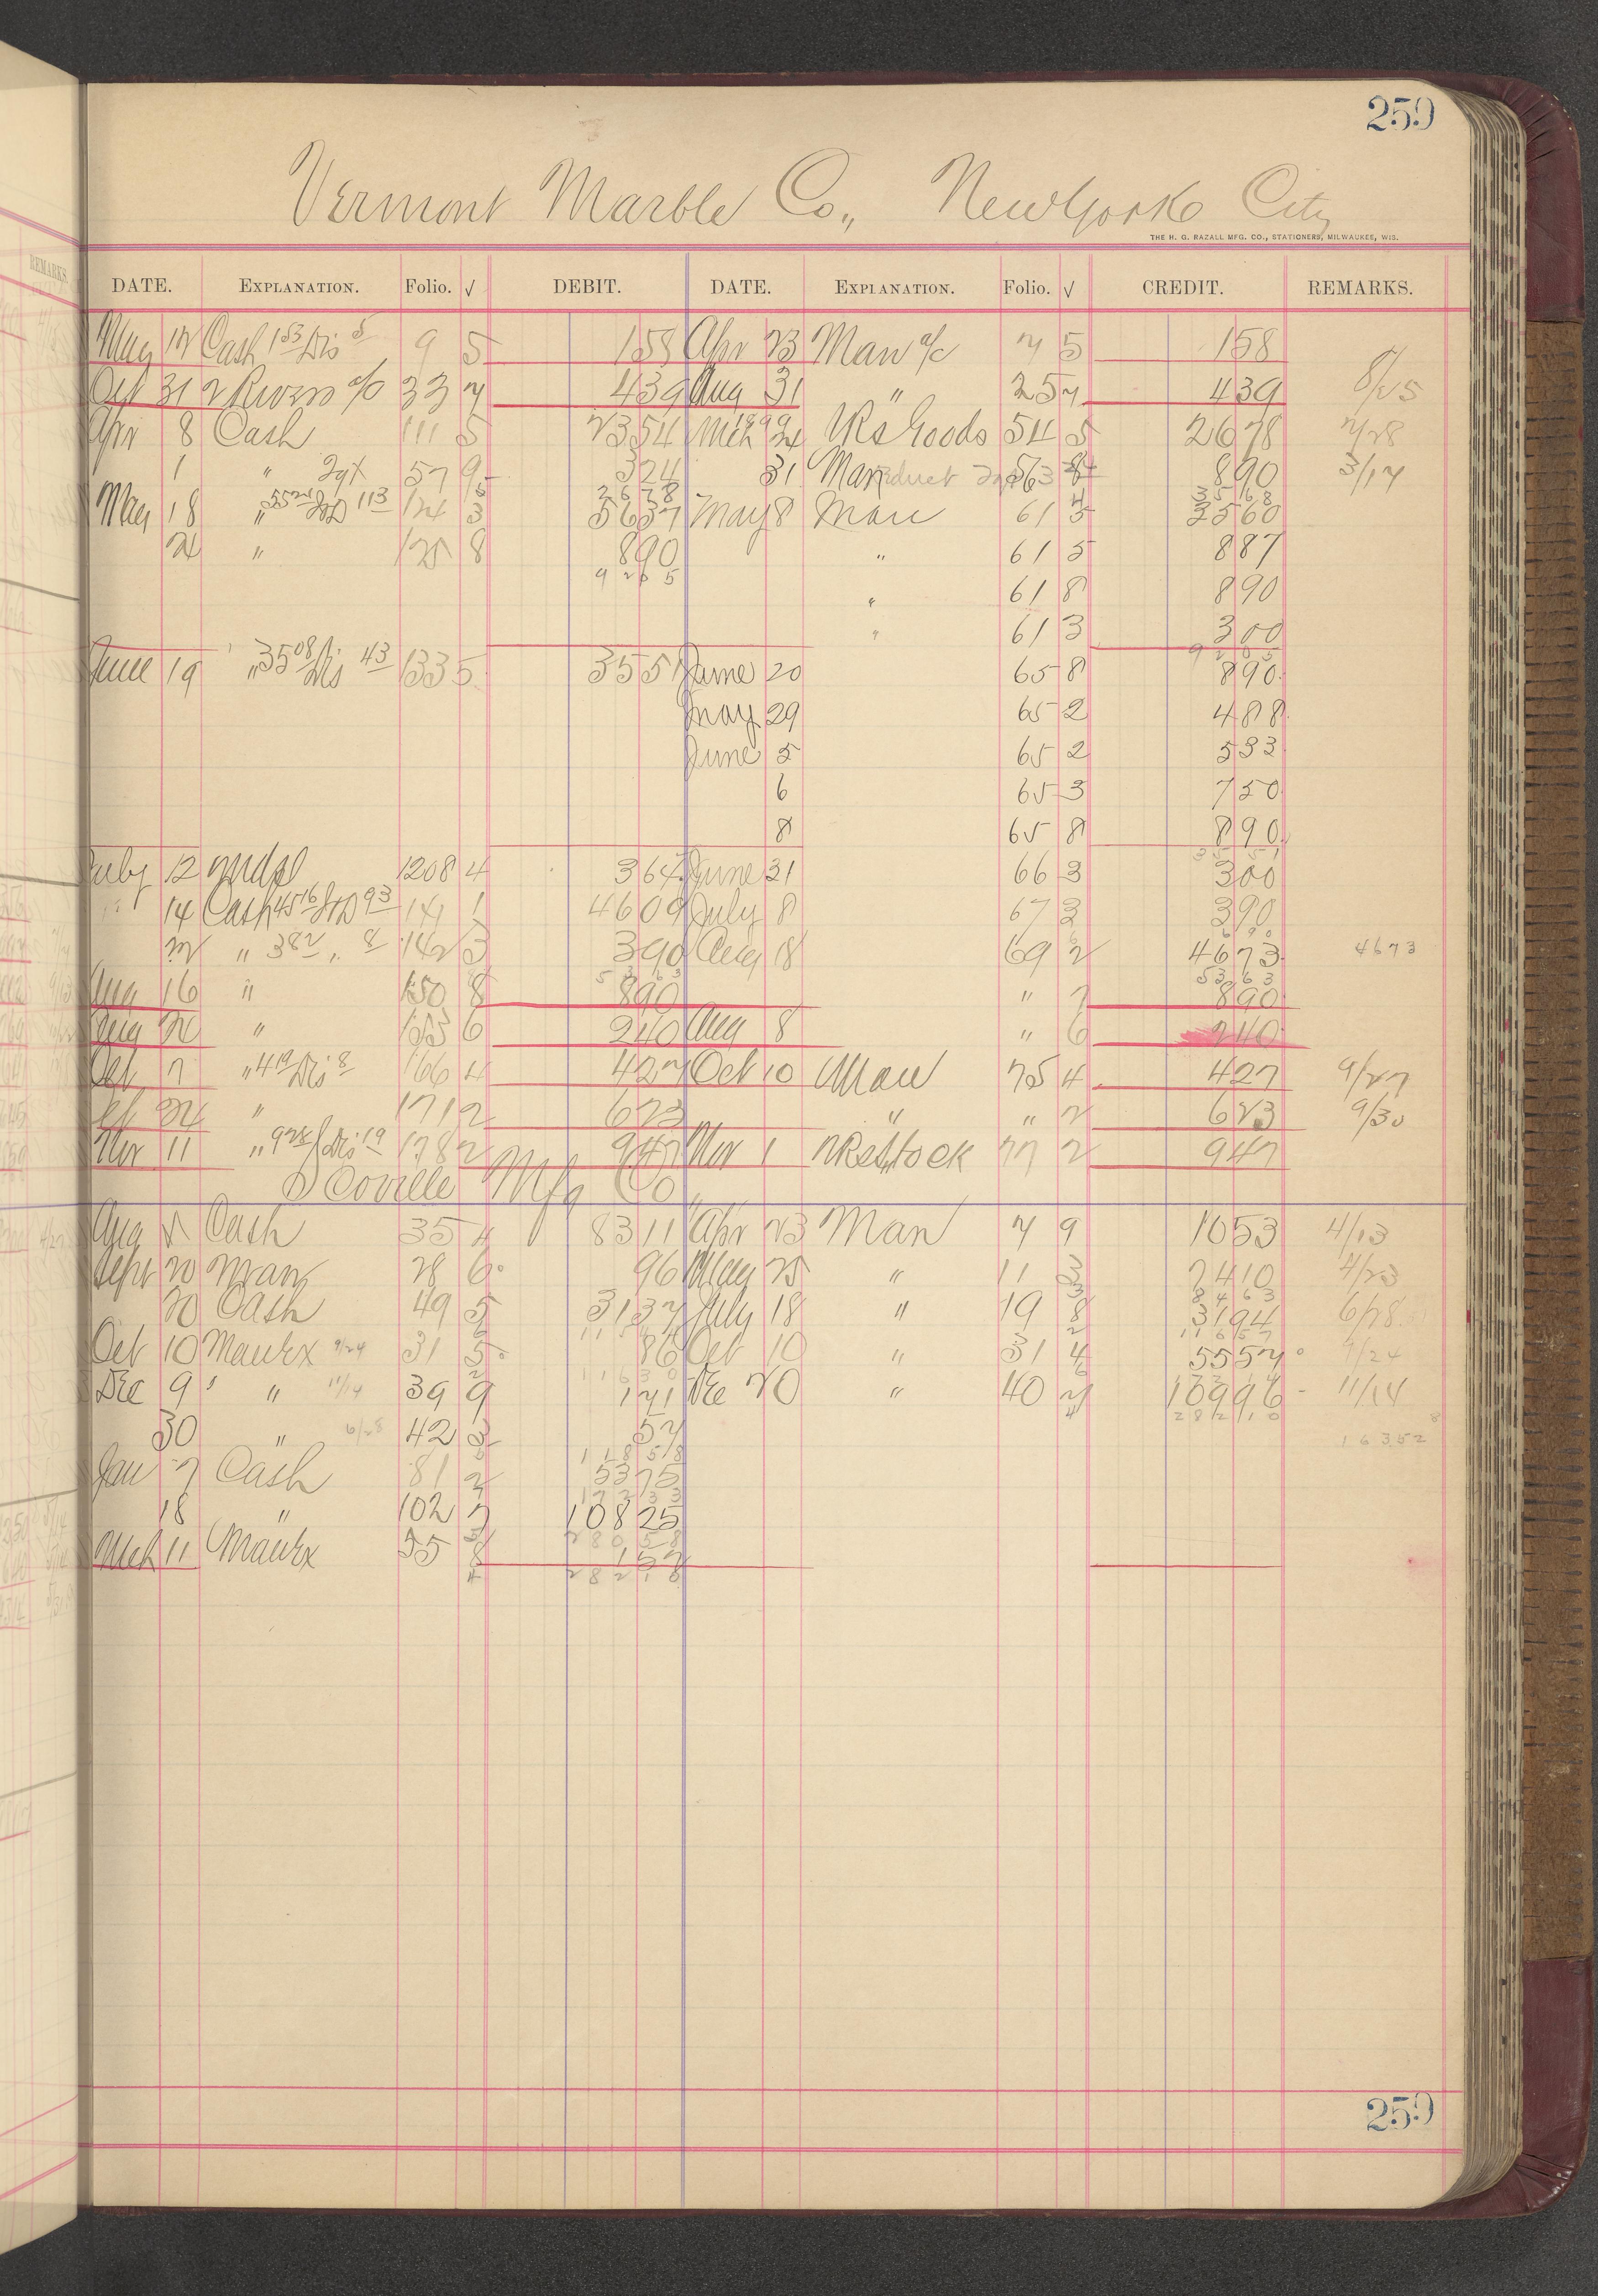 259
Vermont Marble Co., New York City
THE H. G. RAZALL MFG. CO., STATIONERS, MILWAUKEE, WIS.
DATE. EXPLANATION. Folio. √ DEBIT. DATE. EXPLANATION. Folio. √ CREDIT. REMARKS.
May 12 Cash 153 Dis 5 9 5 158 Apr 23 Man a/c 7 5 158
Oct 31 2 Rivers a/c 33 7 439 Aug 31 " 25 7 439 8/25
Apr 8 Cash 111 5 2354 Mch 24 Goods 54 5 2678 2/28
1 " 57 9 324 31 Man 563 890 3/17
2678 3568
May 18 " 5524 113 124 3 5637 May 8 Man 61 5 2560
24 " 125 8 890 " 61 5 887
9205 " 61 8 890
" 61 3 300
June 19 " 3508 Dis 43 133 5 3551 June 20 65 8 890
May 29 65 2 488
June 5 65 2 533
6 65 3 750
8 65 8 890
July 12 Mdse 1208 4 364 June 21 66 3 300
14 Cash 4516 93 141 1 4609 July 8 67 3 390
" 382 " 8 142 3 390 Aug 18 69 2 4673 4673
5363 5363
Aug 16 " 150 8 890 " 7 890
Aug 24 " 153 6 240 Aug 8 " 6 240
Oct 7 " 419 Dis 8 166 4 427 Oct 10 Man 75 4 427 9/27
24 " 171 2 623 " " 2 623 9/30
Nov 11 " 928 Dis 19 178 2 947 Nov 1 Stock 77 2 947
Scoville Mfg Co.,
Aug Cash 35 4 8311 Apr 23 Man 7 9 1053 4/13
Sept 20 Man 28 6 96 May 25 " 11 3 7410 4/23
8463
20 Cash 49 5 3137 July 18 " 19 8 3194 6/28
11657
Oct 10 ManEx 9/24 31 5 86 Oct 10 " 31 4 5557 9/24
11630
Dec 9 " 11/14 39 9 171 Dec 20 " 40 7 10996 11/14
28210
30 " 6/28 42 3 57 16352
11858
Jan 7 Cash 81 2 5375
17233
18 " 102 7 10825
28058
Mch 11 ManEx 55 8 152
28210
259